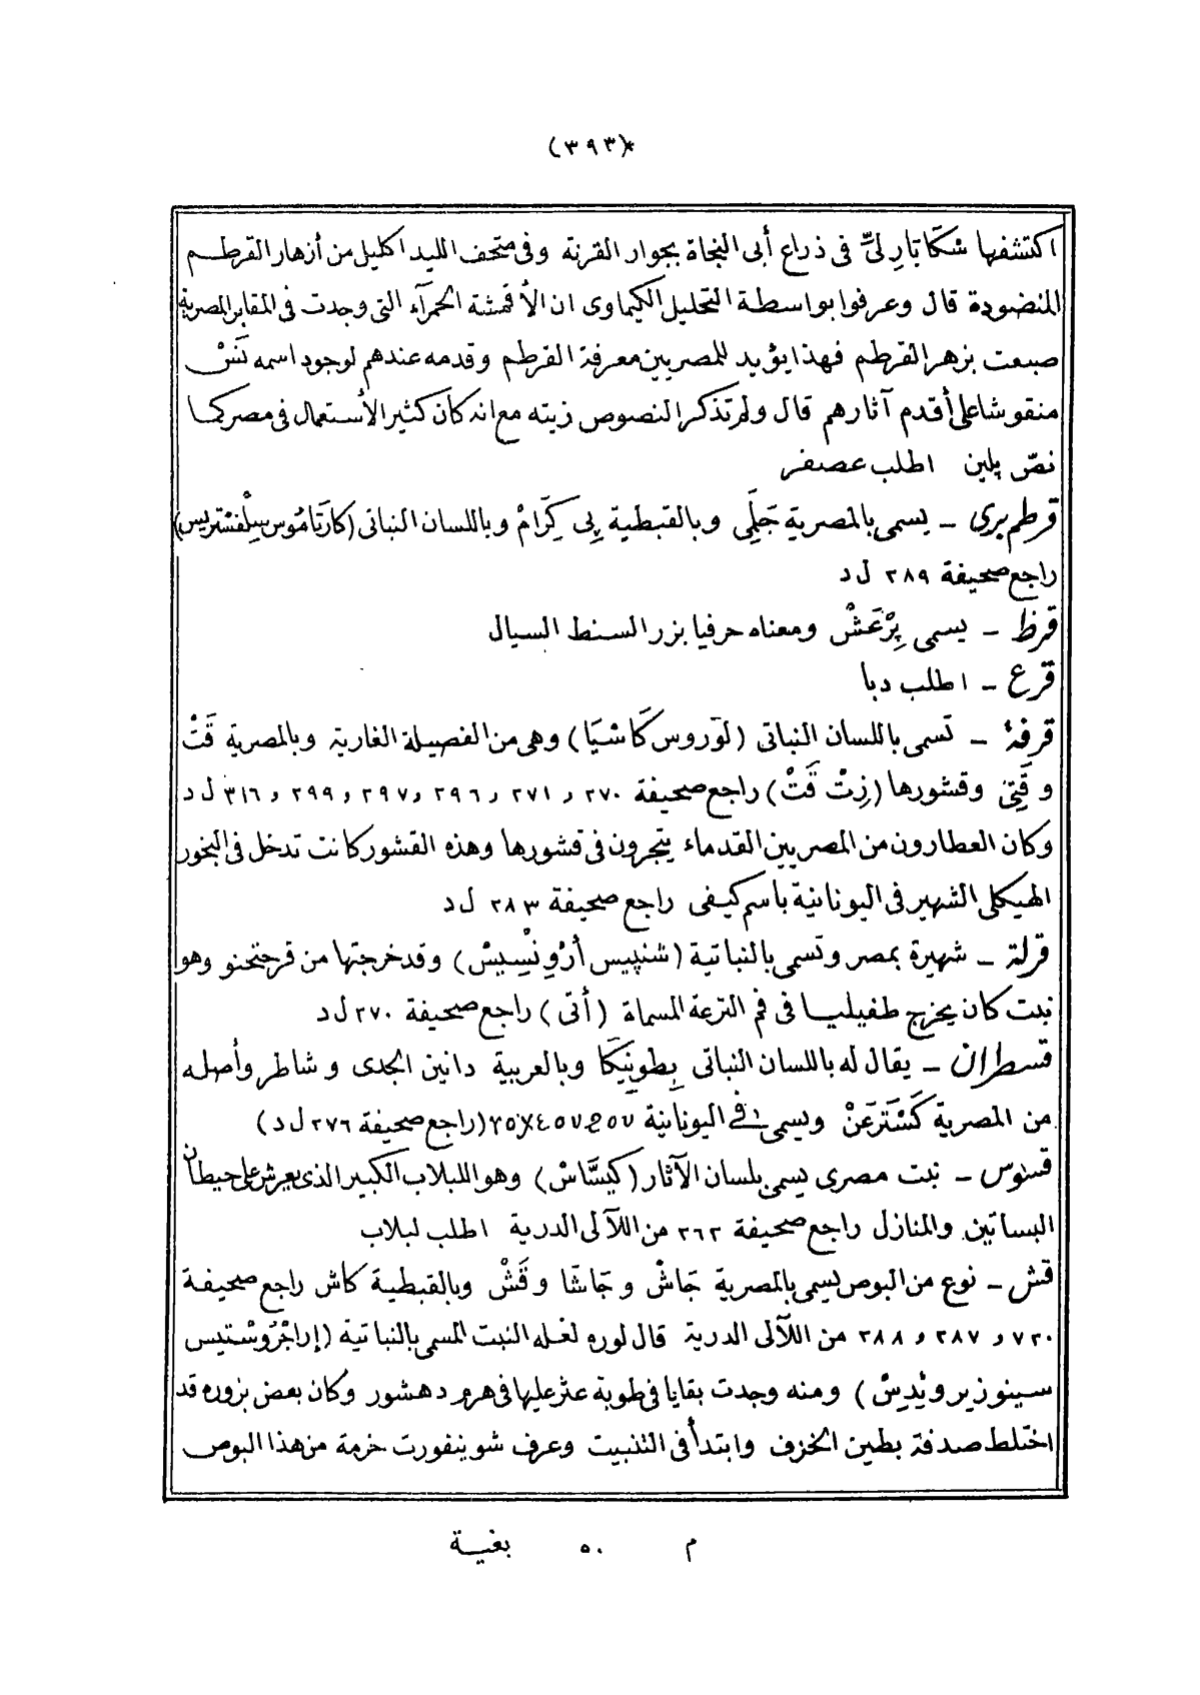 (٣٩٣)*
اكتشفها شكَابَارِلىّ فى ذراع أبى النجاة بجوار القرنة وفى متحف الليد اكليل من أزهار القرطم
المنضودة قال وعرفوا بواسطة التحليل الكيماوى ان الأقمشة الحمرآء التى وجدت فى المقابر المصرية
صبعت بزهر القرطم فهذا يؤيد للمصريين معرفة القرطم وقدمه عندهم لوجود اسمه نَسْ
منقوشا على أقدم آثارهم قال ولم تذكر النصوص زيته مع انه كان كثير الأستعمال فى مصر كما
نصّ پلين اطلب عصفر
قرطم برى – يسمى بالمصرية جَلِّى وبالقبطية بِى كِرَامْ وباللسان النباتى (كارَتامُوس سِلْفسْتريس)
راجع صحيفة ٢٨٩ ل د
قرظ – يسمى پِرْعَشْ ومعناه حرفيا بزر السنط السيال
قرع – اطلب دبا
قرفة – تسمى باللسان النباتى (لوَروس كَاسْيَا) وهى من الفصيلة الغارية وبالمصرية قَتْ
و قَتِى وقشورها (زِتْ قَتْ) راجع صحيفة ٢٧٠ و ٢٧١ و ٢٩٦ و ٢٩٧ و ٢٩٩ و ٣١٦ ل د
وكان العطارون من المصريين القدماء يتجرون فى قشورها وهذه القشور كانت تدخل فى البخور
الهيكلى الشهير فى اليونانية باسم كيفى راجع صحيفة ٢٨٣ ل د
قرلة – شهيرة بمصر وتسمى بالنباتية (سْنپيس أرْوِنْسِيسْ) وقد خرجتها من قرجتحنو وهو
نبت كان يخرج طفيليا فى فم الترعة المسماة (أتى) راجع صحيفة ٢٧٠ ل د
قسطران – يقال له باللسان النباتى بِطوِنِيكَا وبالعربية دانين الجدى و شاطر وأصله
من المصرية كَسْتَرعَنْ ويسمى فى اليونانية (راجع صحيفة ٢٧٦ ل د)
قسوس – نبت مصرى يسمى بلسان الآثار (كيسَّاسْ) وهو اللبلاب الكبير الذى يعرش على حيطان
البساتين والمنازل راجع صحيفة ٢٦٢ من اللآلى الدرية اطلب لبلاب
قش – نوع من البوص يسمى بالمصرية جَاشْ و جَاشَا و قَشْ وبالقبطية كاش راجع صحيفة
٧٢٠ و ٢٨٧ و ٢٨٨ من اللآلى الدرية قال لوره لعله النبت المسمى بالنباتية (إراجْرَوسْتيس
سينوزيرويْدِسْ) ومنه وجدت بقايا فى طوبة عثر عليها فى هرم دهشور وكان بعض بزوره قد
اختلط صدفة بطين الخزف وابتدأ فى التنبيت وعرف شوينفورت خرمة من هذا البوص
م ٥٠ بغية